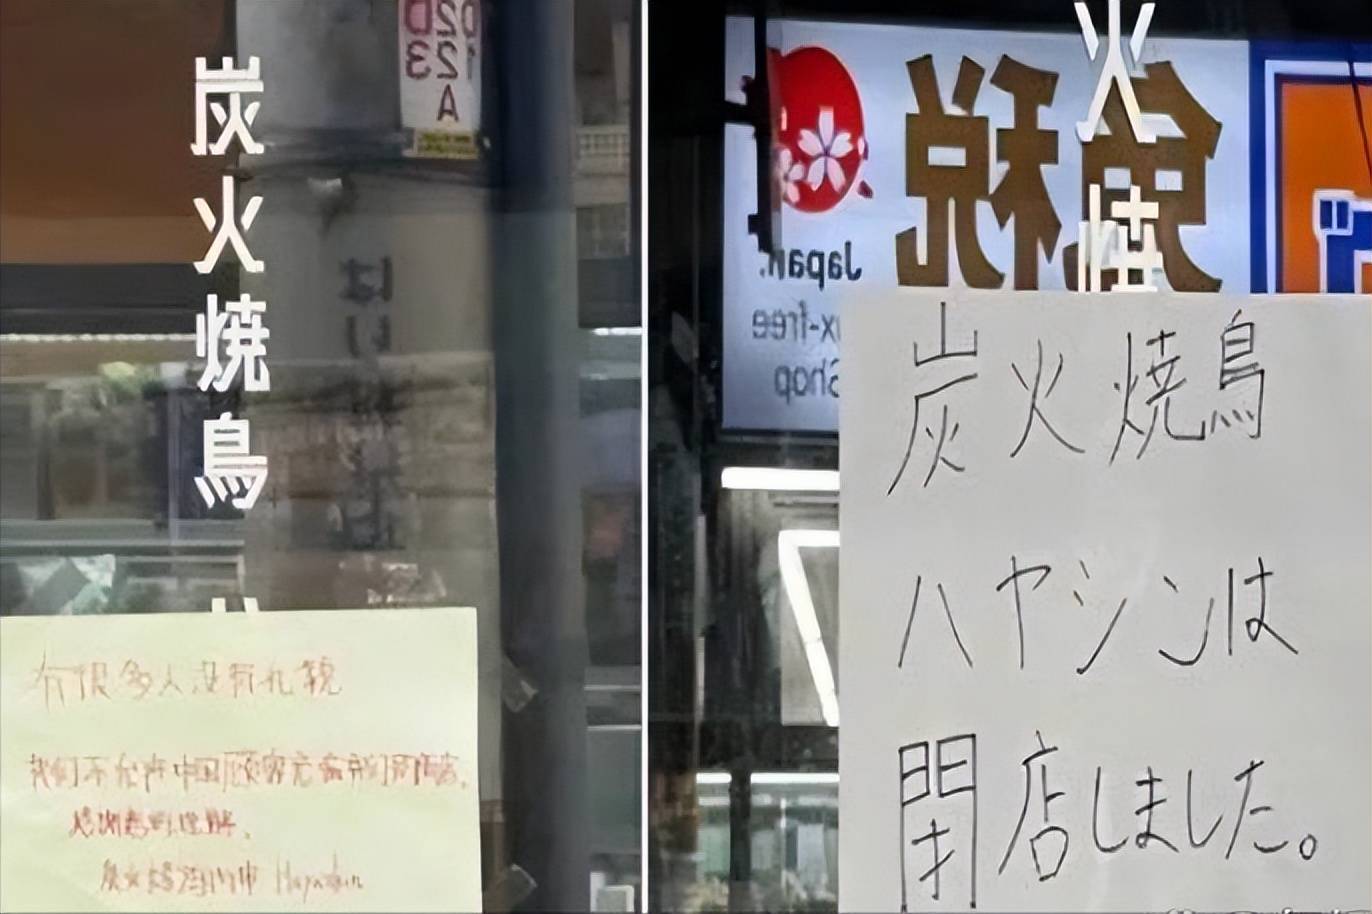 炭火焼鳥
有很多人没有礼貌
我们不允许中国顾客光临我们的店.
感谢您的理解.
Hayashin
火焼
免税
Japan.
Tax-free
Shop
炭火焼鳥
ハヤシンは
閉店しました。